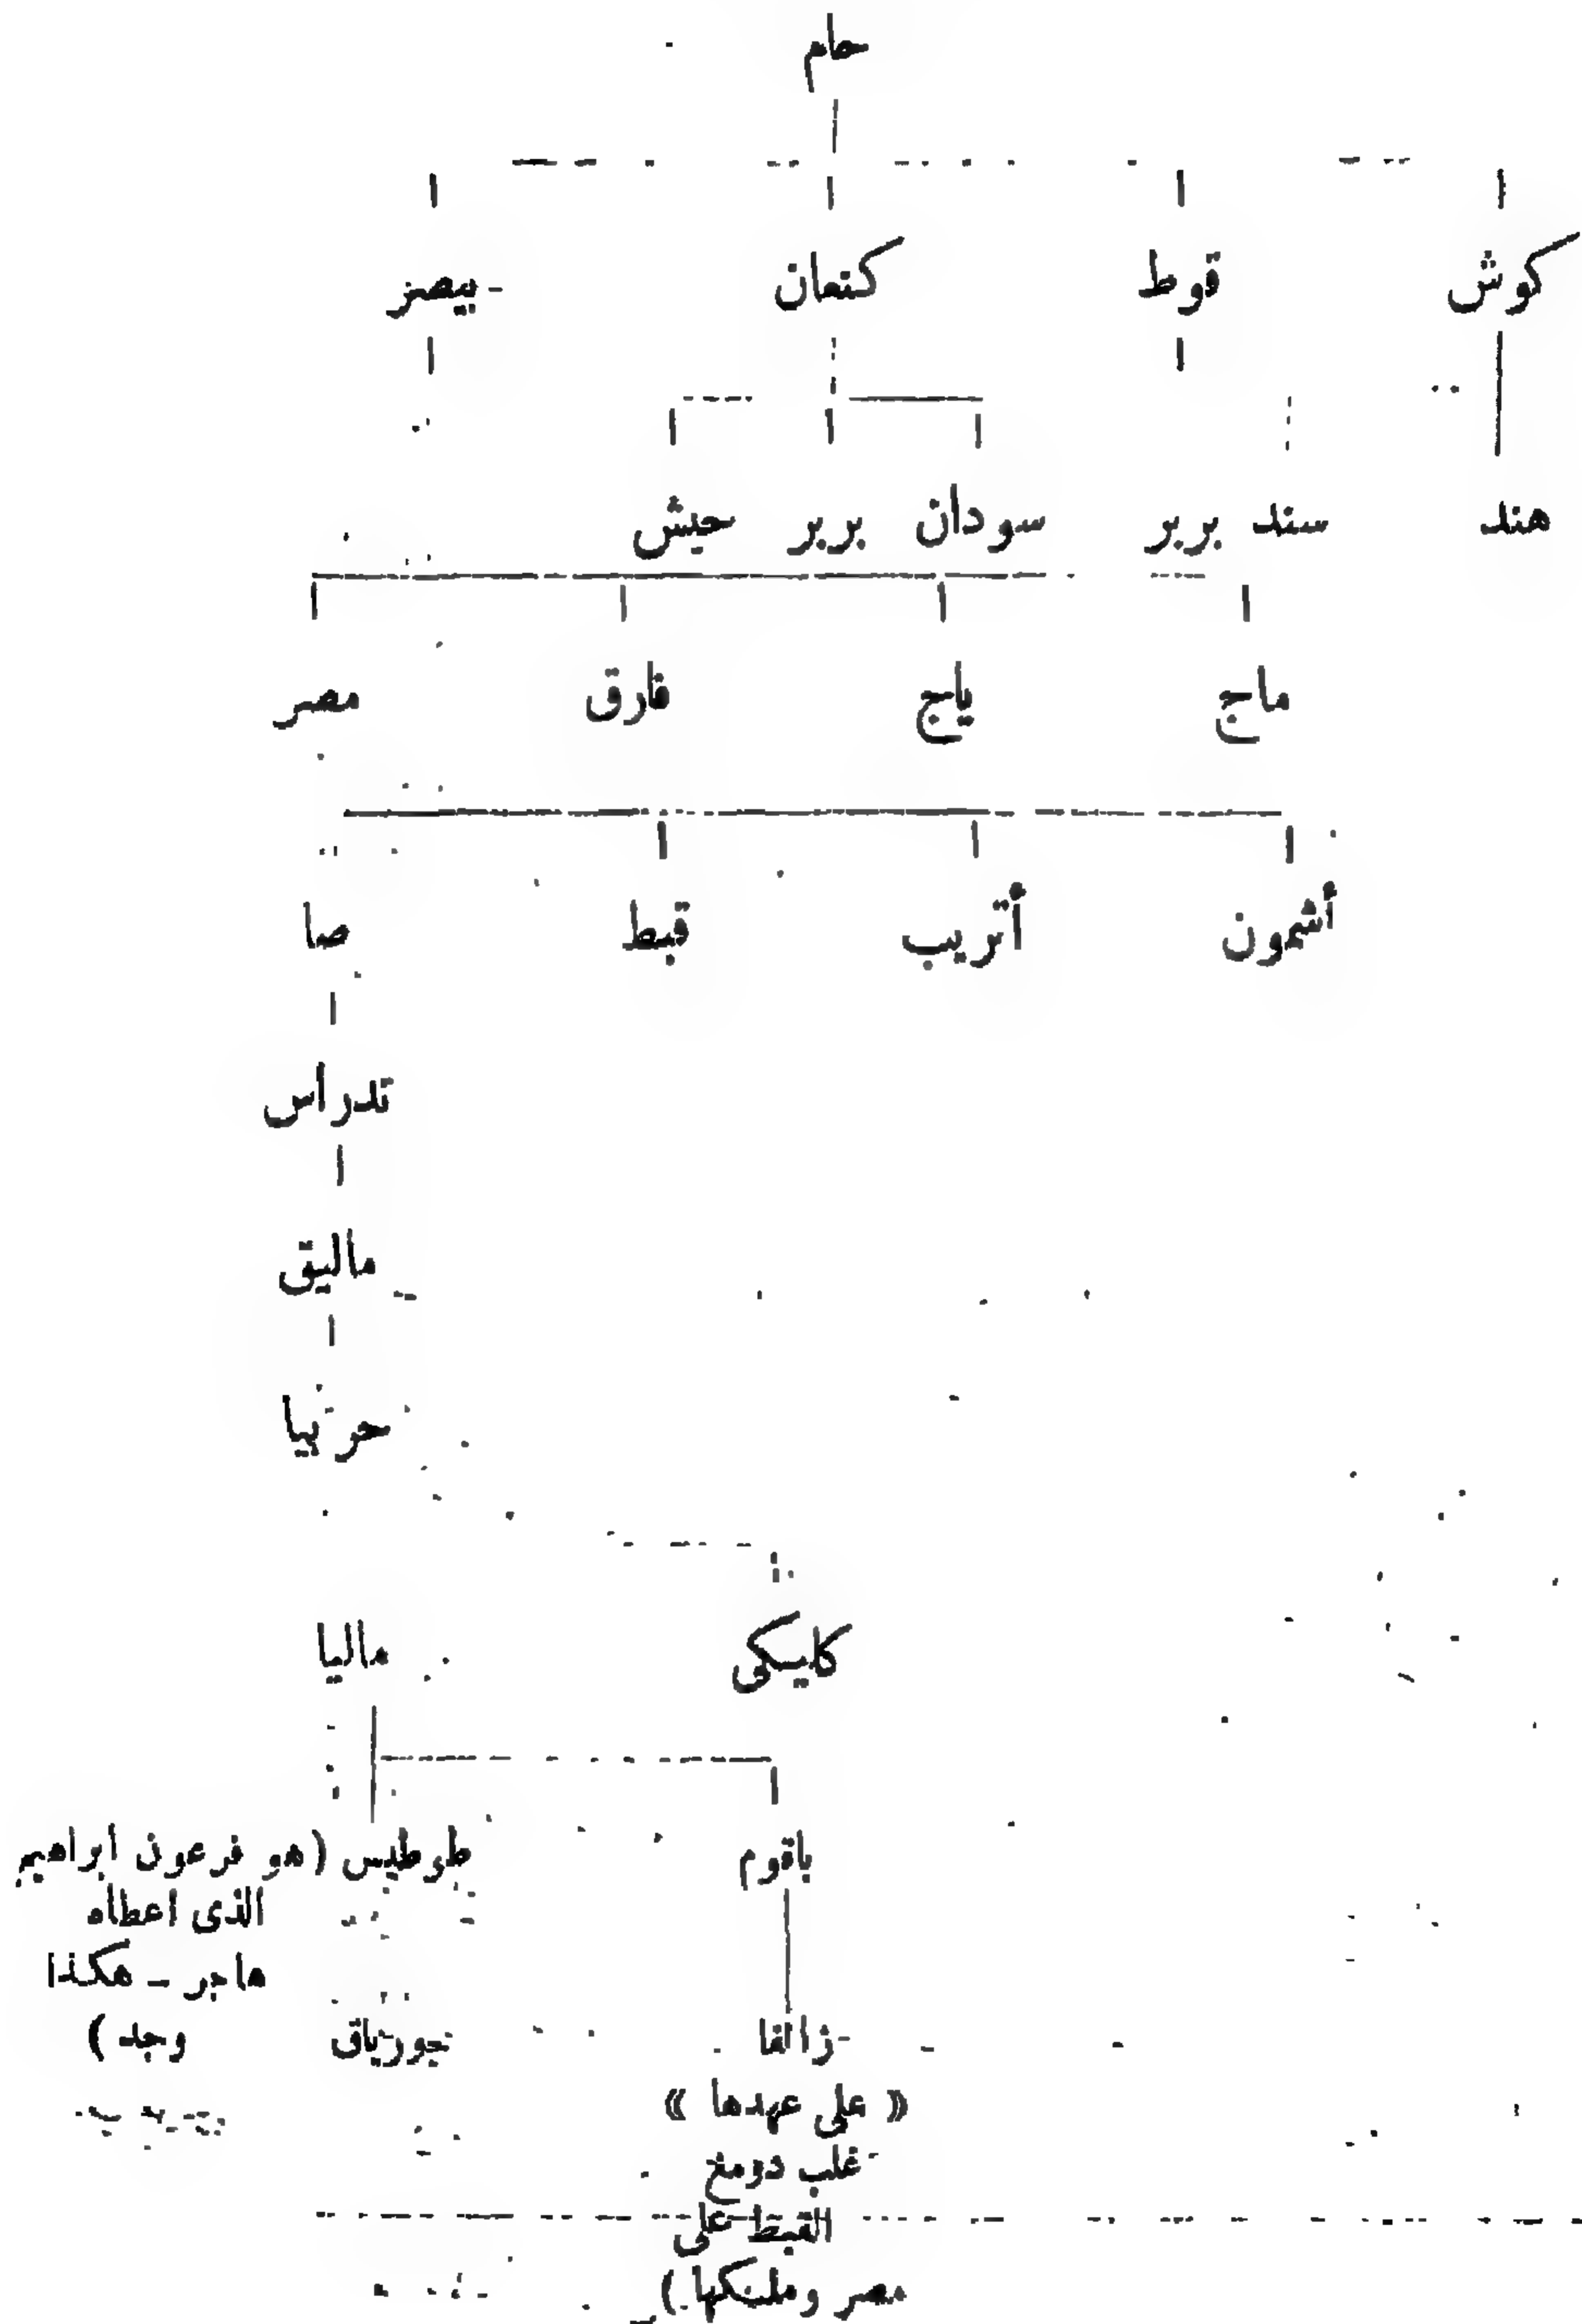 حام
كوش قوط كنعان بيصر
هند سند بربر سودان بربر حبش
ماج ياج فارق مصر
أشمون أتريب قبط صا
تدراس
ماليق
حربيا
كليكى ماليا
باقوم طوطيس (هو فرعون ابراهيم
الذى اعطاه
هاجر - هكذا
وجد)
زالفا جورياق
« على عهدها »
غلب دومغ
القبط على
مصر وملكها)